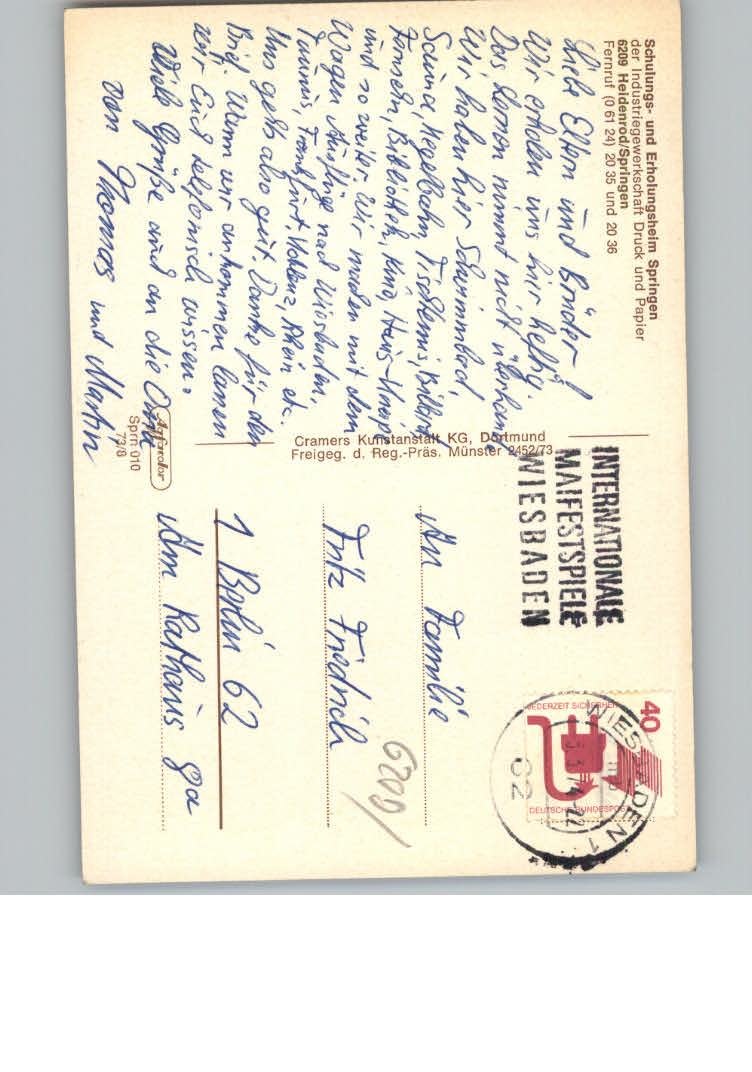 Schulungs- und Erholungsheim Springen
der Industriegewerkschaft Druck und Papier
6209 Heidenrod/Springen
Fernruf (0 61 24) 20 35 und 20 36
Liebe Eltern und Brüder!
Wir erholen uns hier heftig.
Das Lernen nimmt nicht überhand
Wir haben hier Schwimmbad,
Sauna, Kegelbahn, Tischtennis, Billard
Fernsehn, Bibliothek, Kino, Haus-Kneipe
und so weiter. Wir machen mit dem
Wagen Ausflüge nach Wiesbaden,
Taunus, Frankfurt, Koblenz, Rhein etc.
Uns gehts also gut. Danke für den
Brief. Wann wir ankommen lassen
wir Euch telefonisch wissen.
Viele Grüße auch an die Oma
von Thomas und Martin
Agfacolor
Sprn 010
73/8
Cramers Kunstanstalt KG, Dortmund
Freigeg. d. Reg.-Präs. Münster 2452/73
INTERNATIONALE
MAIFESTSPIELE
WIESBADEN
40
JEDERZEIT SICHERHEIT
DEUTSCHE BUNDESPOST
WIESBADEN 1
62
An Familie
Fritz Friedrich
6209/
1 Berlin 62
Am Rathaus 9a